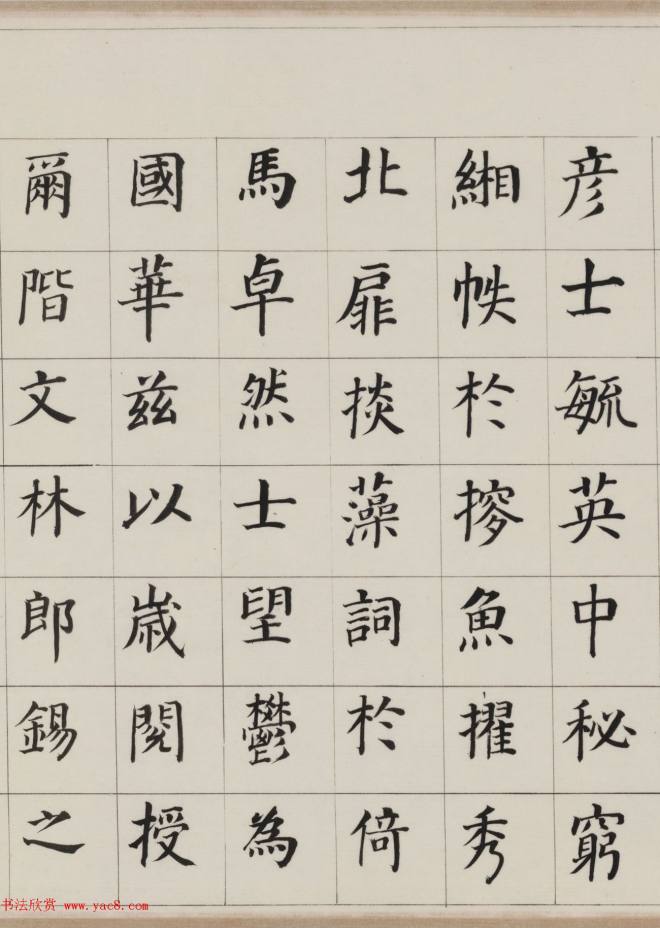 彦士毓英中秘窮
緗帙於摎魚擢秀
北扉掞藻詞於倚
馬卓然士望鬱為
國華茲以歲閱授
爾階文林郎錫之
书法欣赏 www.yac8.com